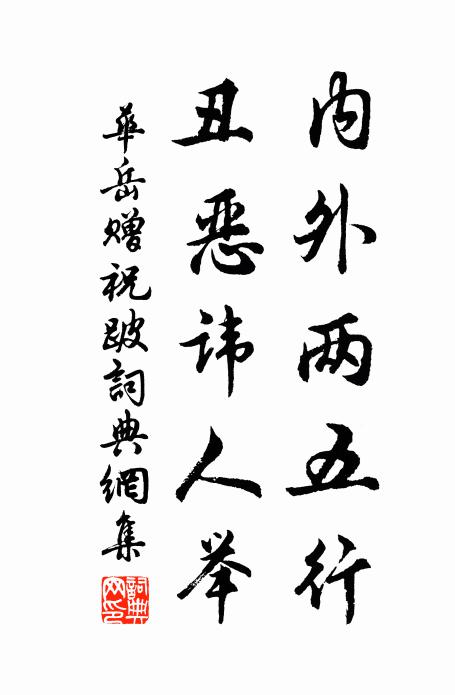 内外两五行
丑惡讳人举
華岳赠祝跛詞典網集
詞典网印